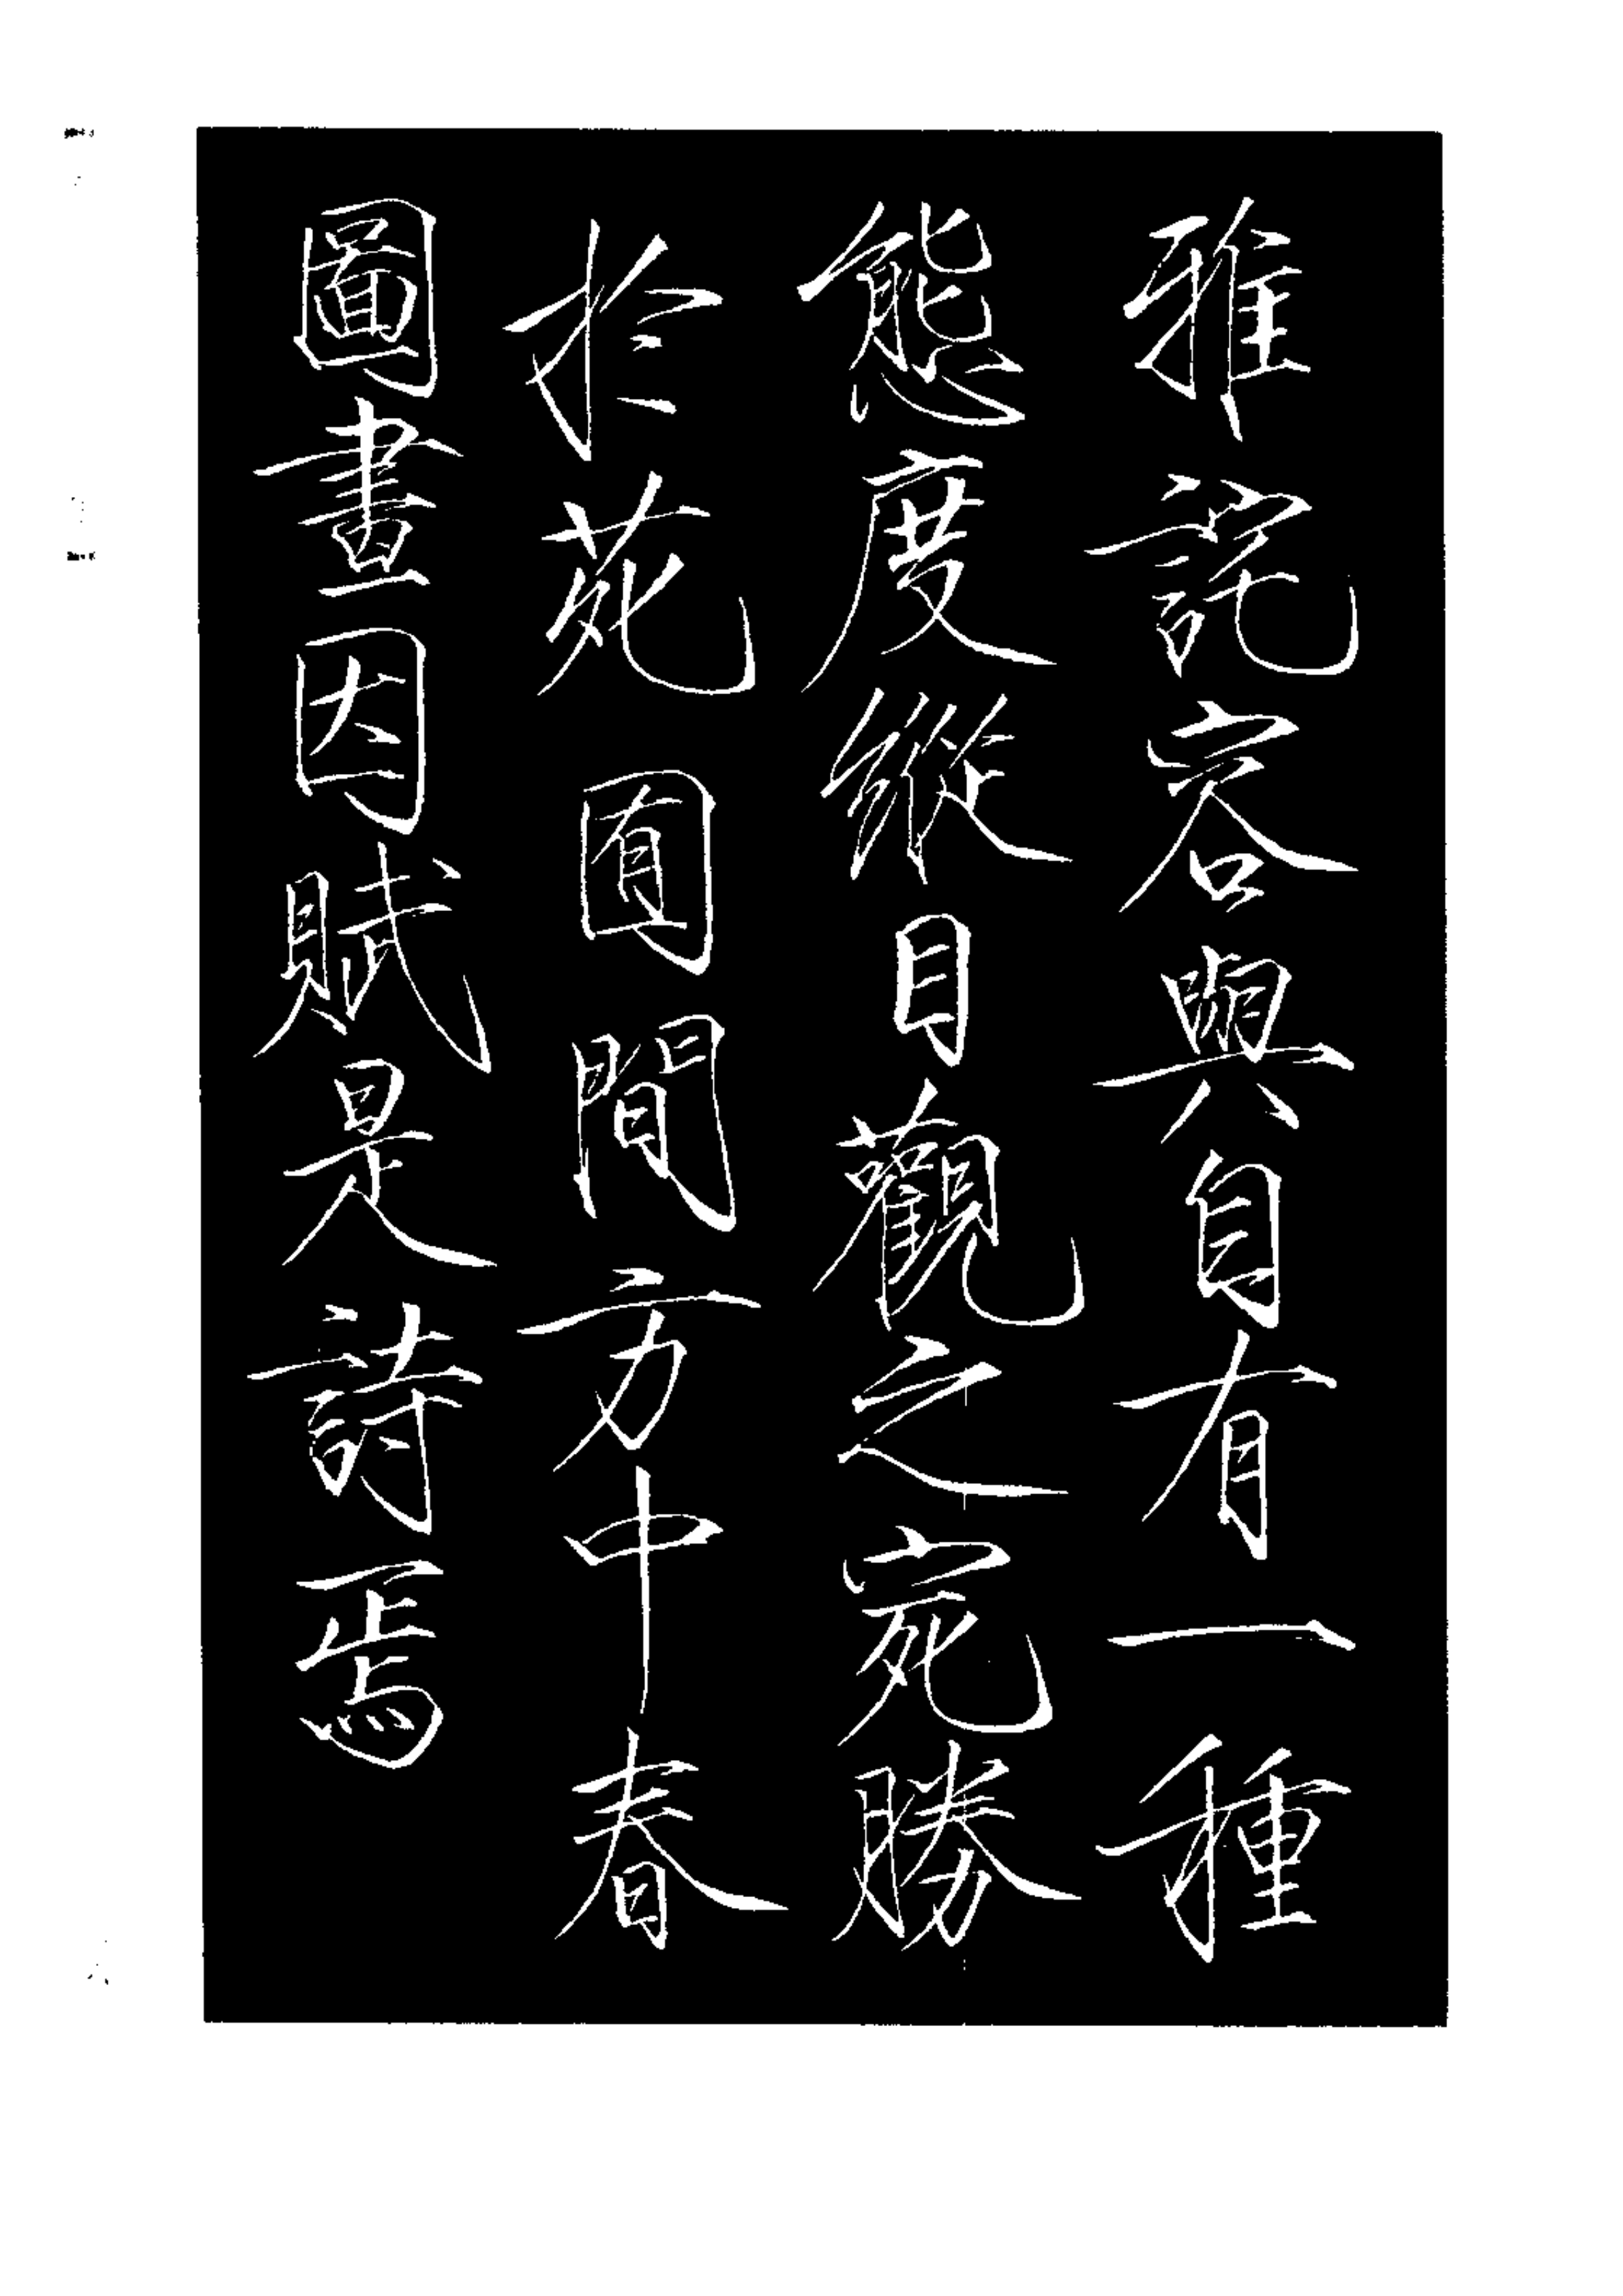 雅詭容與自有一種
態度縱目觀之宛勝
於苑囿間方中春
圖畫因賦是詩焉